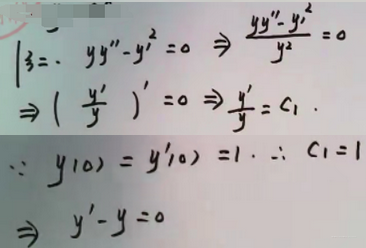 |3=. yy''-y'²=0 ⇒ (yy''-y'²)/y²=0
⇒ (y'/y)'=0 ⇒ y'/y=C₁.
∵ y(0)=y'(0)=1. ∴ C₁=1
⇒ y'-y=0